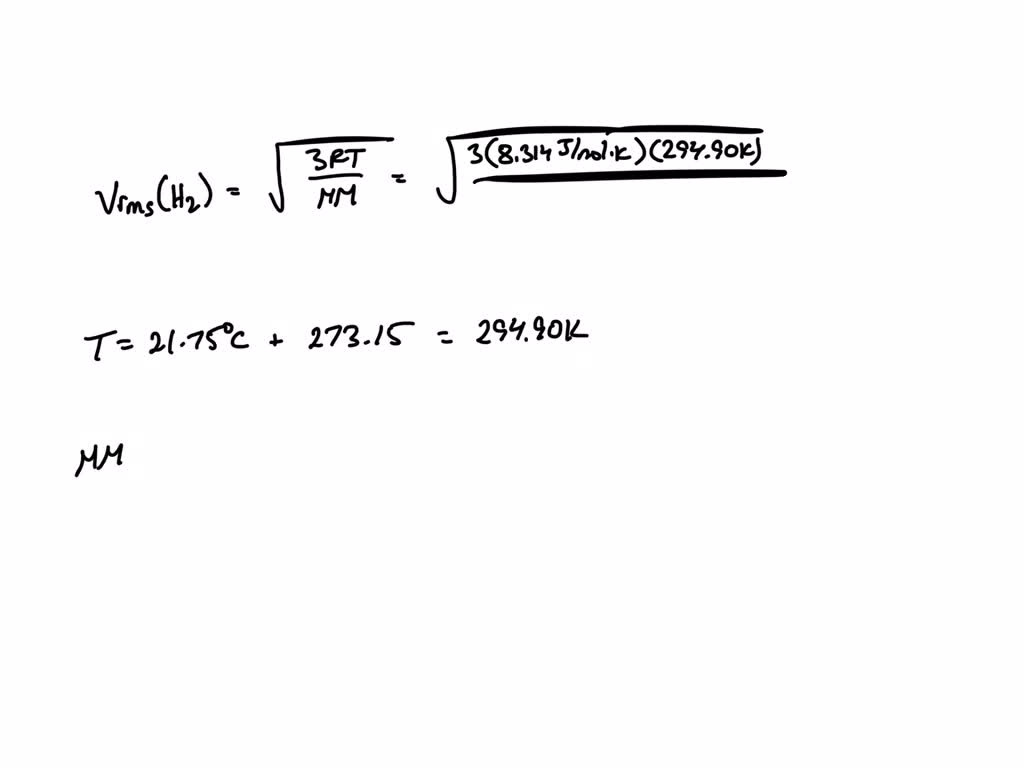 Vrms(H₂) = √(3RT/MM) = √(3(8.314 J/mol·K)(294.90K)
T = 21.75°C + 273.15 = 294.90K
MM